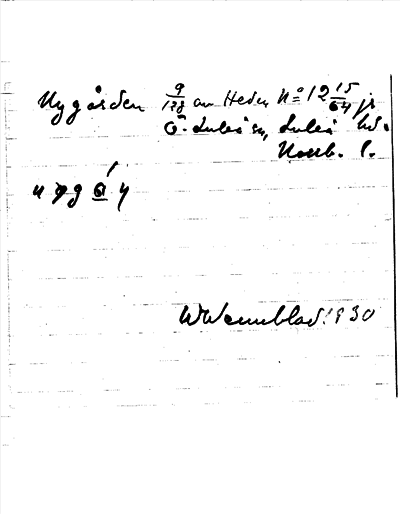 Nygården 9/128 av Heden No 12 15/64 jr
Ö. Luleå sn, Luleå hd.
Norrb. l.
W Wennblad 1930